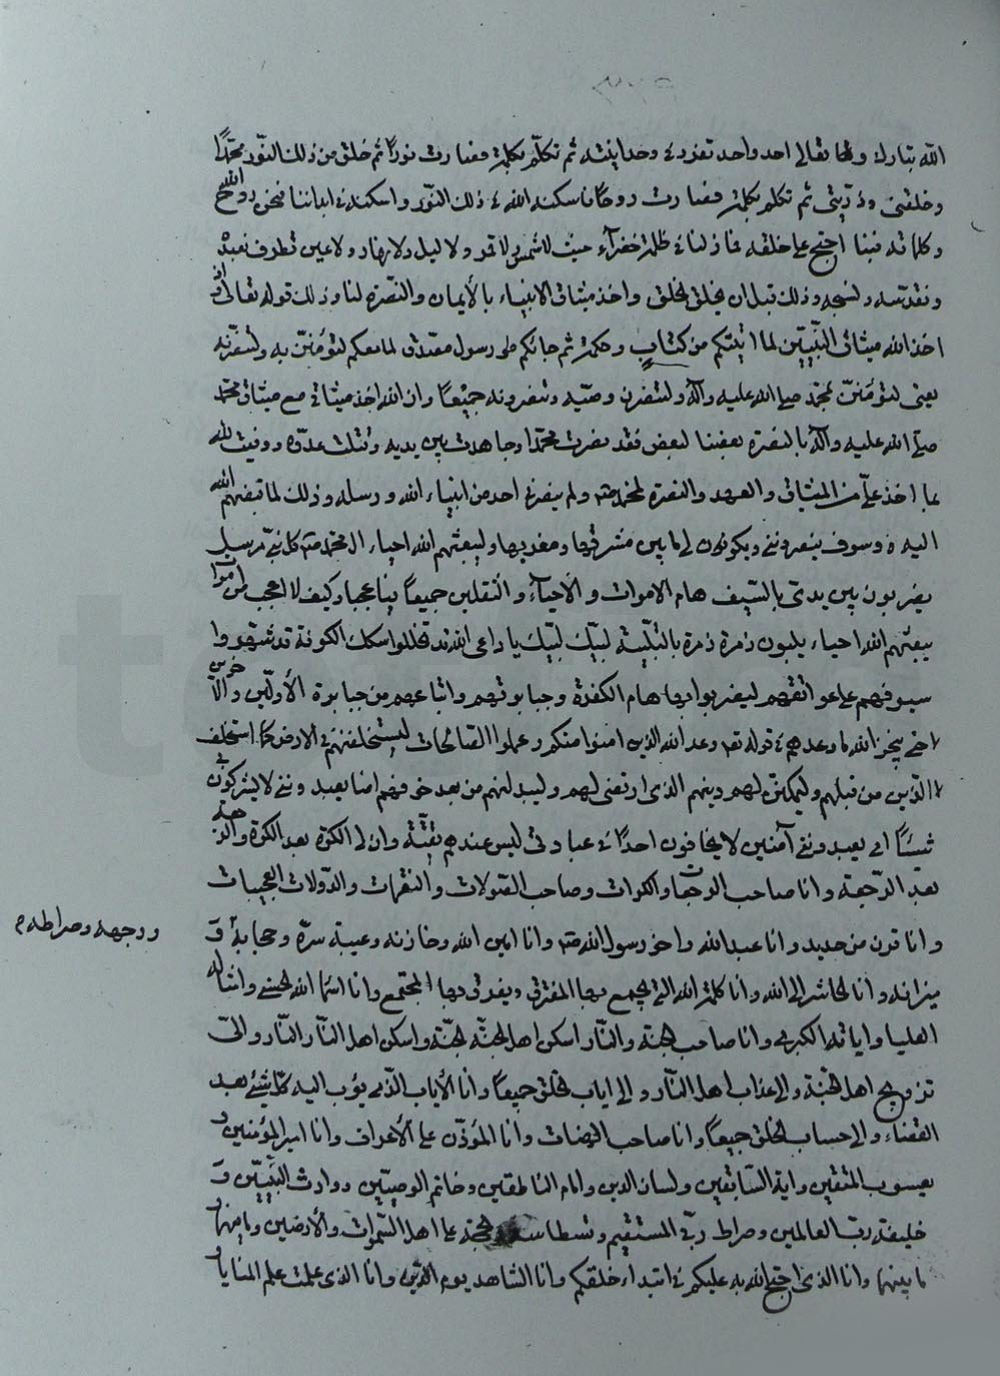 الله تبارك وتعالى احد واحد تفرد في وحدانيته ثم تكلّم بكلمة فصارت نورًا ثم خلق من ذلك النّور محمّدًا
وخلقني وذرّيتي ثم تكلم بكلمة فصارت روحًا فاسكنه الله في ذلك النّور واسكنه في ابداننا فنحن روح الله
وكلماته فبنا احتج على خلقه فما زلنا في ظلة خضراء حيث لا شمس ولا قمر ولا ليل ولا نهار ولا عين تطرف نعبده
ونقدسه ونسبحه وذلك قبل ان يخلق الخلق واخذ ميثاق الانبياء بالأيمان والنّصرة لنا وذلك قوله تعالى واذ
اخذ الله ميثاق النّبيّين لما اتيتكم من كتاب وحكمة ثم جائكم رسول مصدق لما معكم لتؤمننّ به ولتنصرنه
يعني لتؤمننّ بمحمّد صلى الله عليه وآله ولتنصرن وصيّه وتنصرونه جميعًا وان الله اخذ ميثاقي مع ميثاق محمّد
صلّى الله عليه وآله بالنصرة بعضنا لبعض فقد نصرت محمّدا وجاهدت بين يديه وقتلت عدوّه ووفيت لله
بما اخذ عليّ من الميثاق والعهد والنصرة لمحمد ص ولم ينصرني احد من انبياء الله ورسله وذلك لما قبضهم الله
اليه وسوف ينصرونني ويكون لي ما بين مشرقها ومغربها وليبعثنهم الله احياء ال محمد ص كل نبيّ مرسل
يضربون بين يديّ بالسّيف هام الاموات والأحياء والثقلين جميعًا فيا عجبا وكيف لا اعجب من اموات
يبعثهم الله احياء يلبون زمرة زمرة بالتلبية لبيّك لبيّك يا داعي الله قد تخللوا سكك الكوفة قد شهروا
سيوفهم على عواتقهم ليضربوا بها هام الكفرة وجبابرتهم واتباعهم من جبابرة الأولين والآخرين
حتى ينجز الله ما وعدهم في قوله تع وعد الله الذين امنوا منكم وعملوا الصّالحات ليستخلفنهم في الارض كما استخلف
الّذين من قبلهم وليمكننّ لهم دينهم الذي ارتضى لهم وليبدلنهم من بعد خوفهم امنا يعبدونني لا يشركون بي
شيئًا اي يعبدونني آمنين لا يخافون احدًا في عبادتي ليس عندهم تقيّة وان لي الكرّة بعد الكرّة والرجعة
بعد الرّجعة وانا صاحب الرجعات والكرات وصاحب الصّولات والنقمات والدّولات العجيبات
وانا قرن من حديد وانا عبد الله واخو رسول الله ص وانا امين الله وخازنه وعيبة سرّه وحجابه و
ووجهه وصراطه
ميزانه وانا الحاشر الى الله وانا كلمة الله التي يجمع بها المفترق ويفرق بها المجتمع وانا اسماء الله الحسنى وامثاله
العليا واياته الكبرى وانا صاحب الجنة والنّار اسكن اهل الجنّة الجنّة واسكن اهل النّار النّار والىّ
تزويج اهل الجنّة والي عذاب اهل النّار والي اياب الخلق جميعًا وانا الأياب الّذي يؤب اليه كلّ شيئ بعد
القضاء والي حساب الخلق جميعًا وانا صاحب الهنات وانا المؤذّن على الأعراف وانا امير المؤمنين و
يعسوب المتقين واية السّابقين ولسان الناطقين وخاتم الوصيّين ووارث النّبيّين و
خليفة ربّ العالمين وصراط ربّي المستقيم وقسطاسه والحجّة على اهل السّموات والأرضين وما فيها و
ما بينهما وانا الذي احتج الله به عليكم في ابتداء خلقكم وانا الشاهد يوم الدّين وانا الذي علمت علم المنايا و